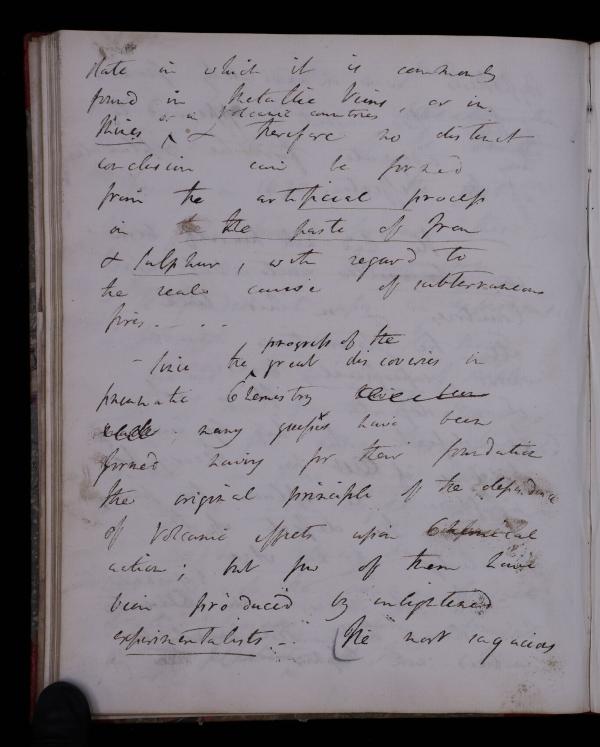 state in which it is commonly
found in Metallic Veins, or in
or in Volcanic countries
Mines ^ & therefore no distinct
conclusion can be formed
from the artificial process
in the the paste of Iron
& Sulphur, with regard to
the real cause of subterraneous
fires. - . .
progress of the
- Since the ^ great discoveries in
pneumatic Chemistry have been
made; many guesses have been
formed having for their foundation
the original principle of the dependence
of Volcanic effects upon Chemical
action; but few of them have
been produced by enlightened
experimentalists. - . (The most sagacious